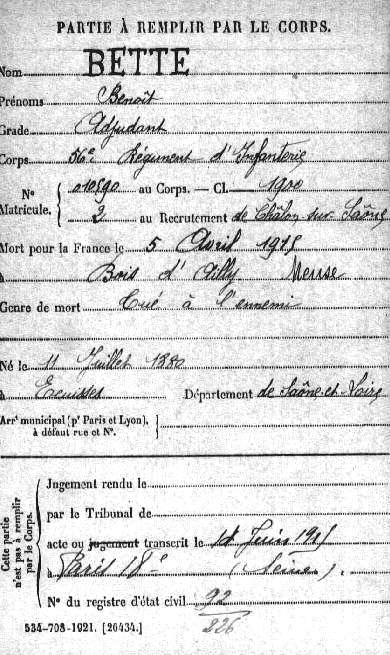 PARTIE À REMPLIR PAR LE CORPS.
Nom BETTE
Prénoms Benoît
Grade Adjudant
Corps 56e Régiment d'Infanterie
N° Matricule. { 010590 au Corps. — Cl. 1900
2 au Recrutement de Châlon sur Saône
Mort pour la France le 5 Avril 1915
à Bois d'Ailly Meuse
Genre de mort Tué à l'ennemi
Né le 11 Juillet 1880
à Ecuisses Département de Saône-et-Loire
Arrt municipal (pr Paris et Lyon), à défaut rue et N°. }
Cette partie n'est pas à remplir par le Corps.
Jugement rendu le
par le Tribunal de
acte ou jugement transcrit le Juin 1915
à Paris 18e (Seine).
N° du registre d'état civil 92
226
534-708-1921. [26434.]